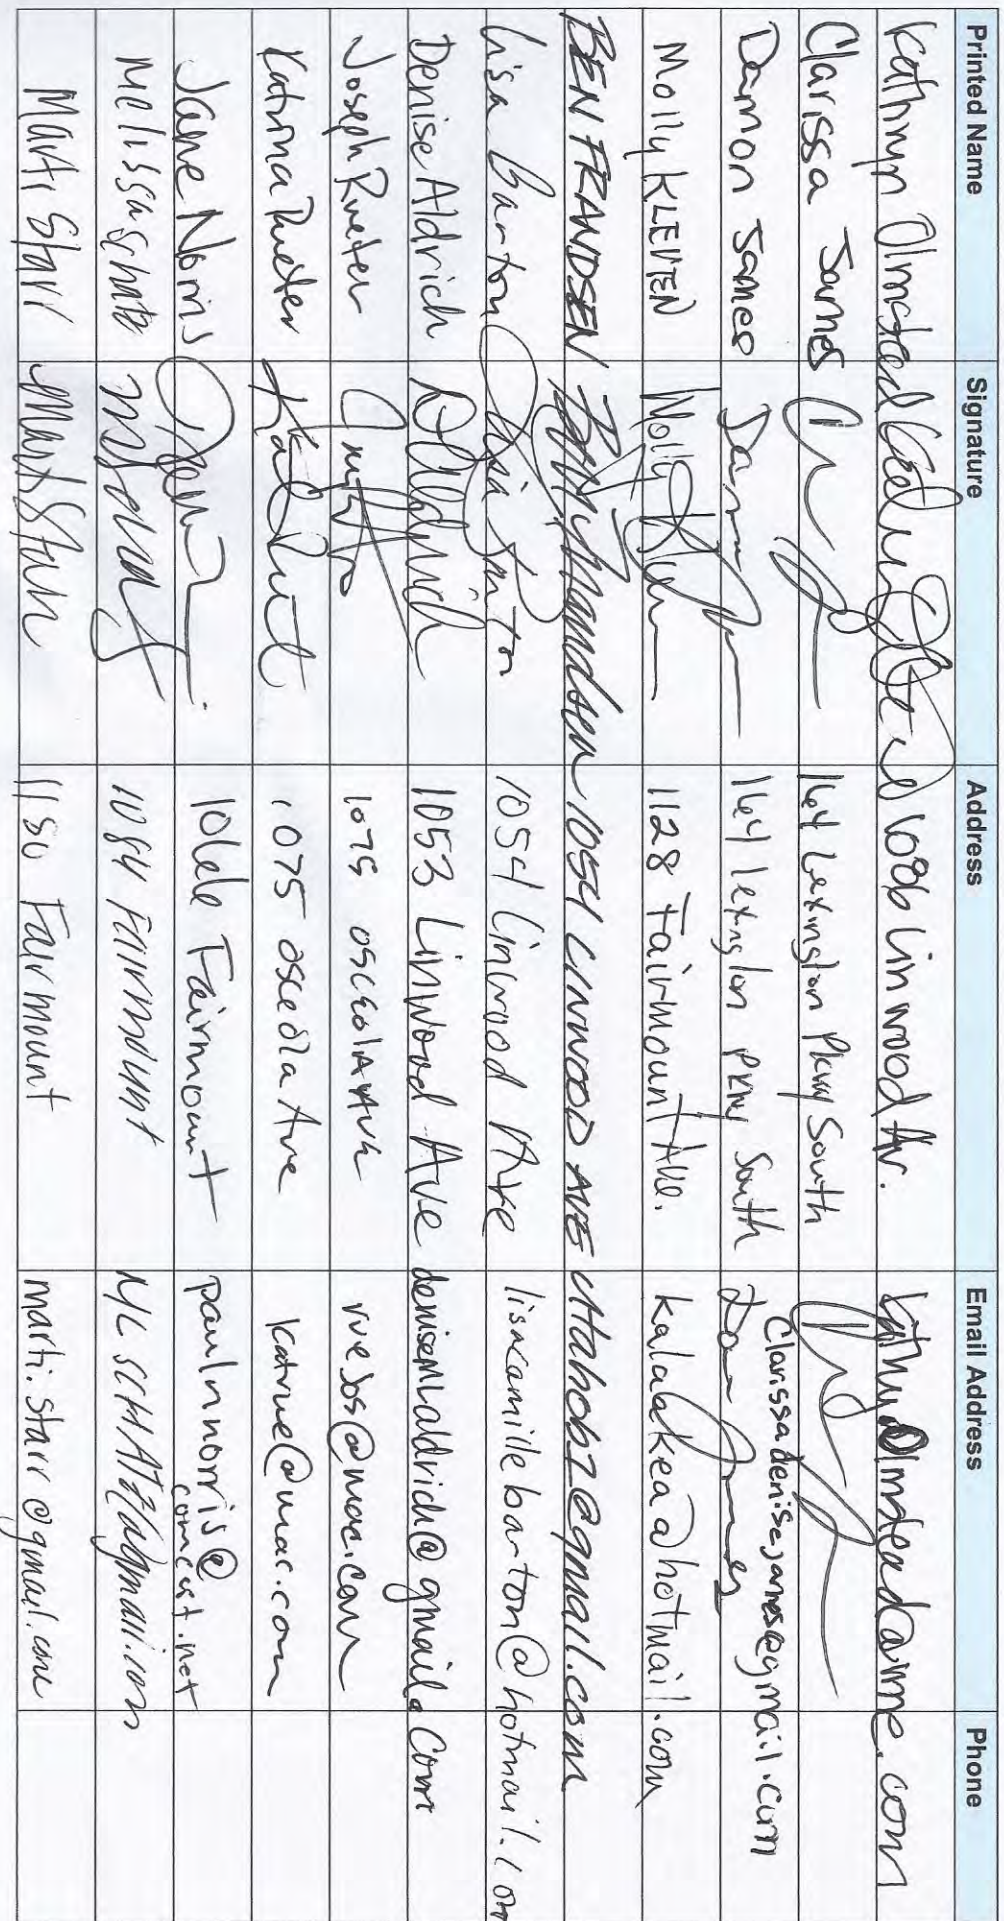 Printed Name Signature Address Email Address Phone
Kathryn Olmstead 1086 Linwood Av. kathyolmstead@me.com
Clarissa James 164 Lexington Pkwy South
Damon James 164 lexington pkwy South Clarissadenisejames@gmail.com
Molly KLEVEN Molly 1128 Fairmount Ave. kalalakea@hotmail.com
BEN FRANDSEN 1054 LINWOOD AVE
Lisa Barton Lisa Barton 1054 Linwood Ave lisacamillebarton@hotmail.com
Denise Aldrich 1053 Linwood Ave denisemaldrich@gmail.com
Joseph Rueter 1075 osceola Ave ruejos@mac.com
Katrina Rueter 1075 osceola Ave katrue@mac.com
Jane Norris Fairmount paulnnorris@comcast.net
Melissa 1084 Fairmount
Marti Starr Marti Starr 1150 Fairmount marti.starr@gmail.com